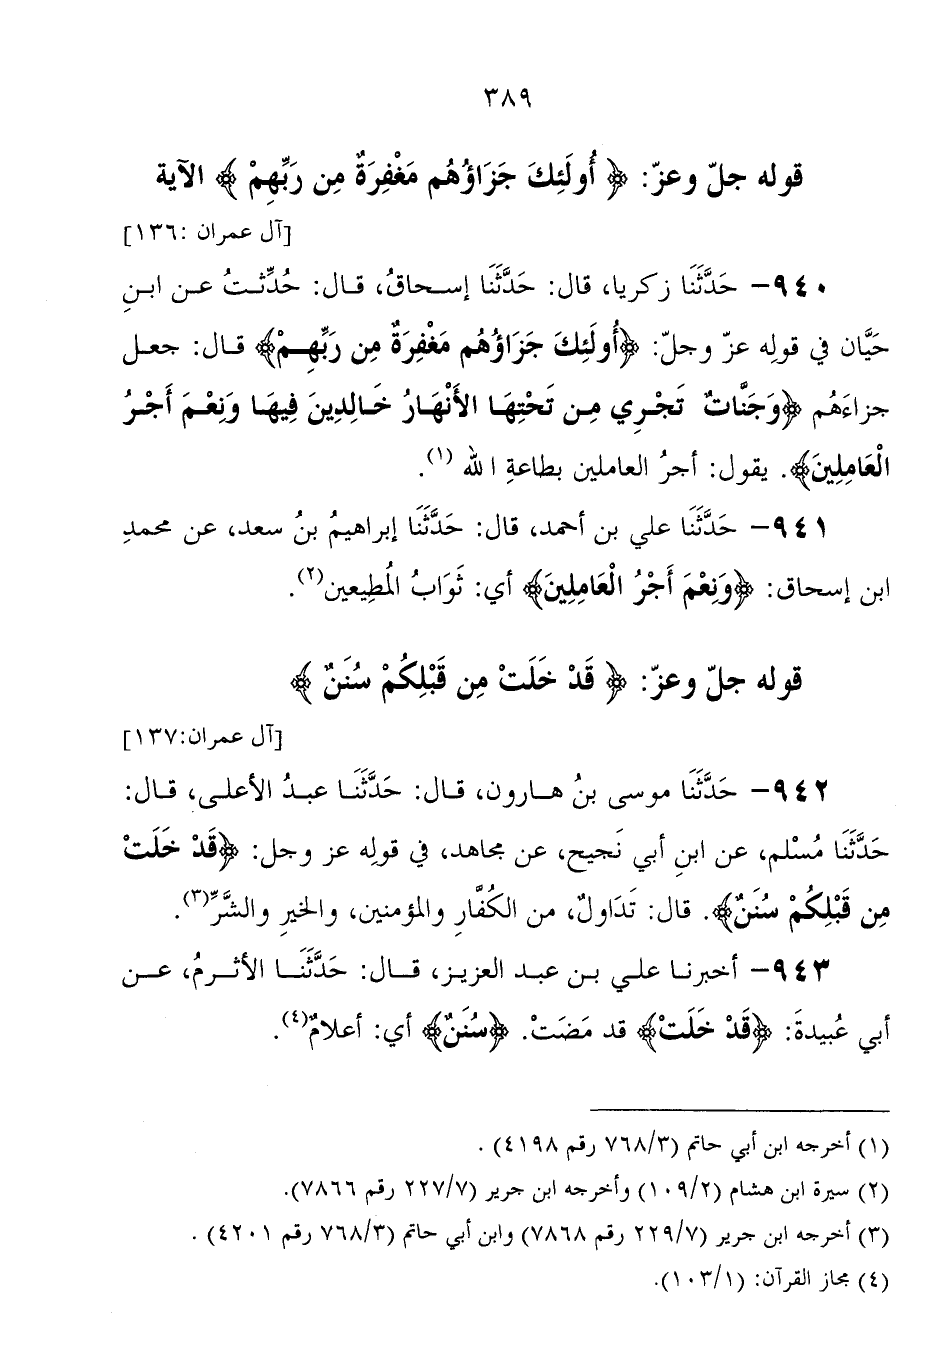 ٣٨٩
قوله جلّ وعزّ: ﴿ أُولَئِكَ جَزَاؤُهُم مَغْفِرَةٌ مِن رَبِّهِمْ ﴾ الآية
[آل عمران :١٣٦]
٩٤٠- حَدَّثَنَا زكريا، قال: حَدَّثَنَا إسحاقُ، قال: حُدِّثتُ عن ابنِ
حَيَّان في قولِه عزّ وجلّ: ﴿أُولَئِكَ جَزَاؤُهُم مَغْفِرَةٌ مِن رَبِّهِمْ﴾ قال: جعل
جزاءَهُم ﴿وَجَنَّاتٌ تَجْرِي مِن تَحْتِهَا الأَنْهَارُ خَالِدِينَ فِيهَا وَنِعْمَ أَجْرُ
الْعَامِلِينَ﴾. يقول: أجرُ العاملين بطاعةِ الله (١).
٩٤١- حَدَّثَنَا علي بن أحمد، قال: حَدَّثَنَا إبراهيمُ بنُ سعد، عن محمدِ
ابن إسحاق: ﴿وَنِعْمَ أَجْرُ الْعَامِلِينَ﴾ أي: ثَوَابُ المُطِيعين(٢).
قوله جلّ وعزّ: ﴿ قَدْ خَلَتْ مِن قَبْلِكُمْ سُنَنٌ ﴾
[آل عمران:١٣٧]
٩٤٢- حَدَّثَنَا موسى بنُ هارون، قال: حَدَّثَنَا عبدُ الأعلى، قال:
حَدَّثَنَا مُسْلم، عن ابنِ أبي نَجيح، عن مجاهد، في قولِه عز وجل: ﴿قَدْ خَلَتْ
مِن قَبْلِكُمْ سُنَنٌ﴾. قال: تَدَاولٌ، من الكُفَّارِ والمؤمنين، والخيرِ والشَّرِّ(٣).
٩٤٣- أخبرنا علي بن عبد العزيز، قال: حَدَّثَنَا الأثرمُ، عن
أبي عُبيدةَ: ﴿قَدْ خَلَتْ﴾ قد مَضَتْ. ﴿سُنَنٌ﴾ أي: أعلامٌ(٤).
(١) أخرجه ابن أبي حاتم (٧٦٨/٣ رقم ٤١٩٨) .
(٢) سيرة ابن هشام (١٠٩/٢) وأخرجه ابن جرير (٢٢٧/٧ رقم ٧٨٦٦).
(٣) أخرجه ابن جرير (٢٢٩/٧ رقم ٧٨٦٨) وابن أبي حاتم (٧٦٨/٣ رقم ٤٢٠١) .
(٤) مجاز القرآن: (١٠٣/١).